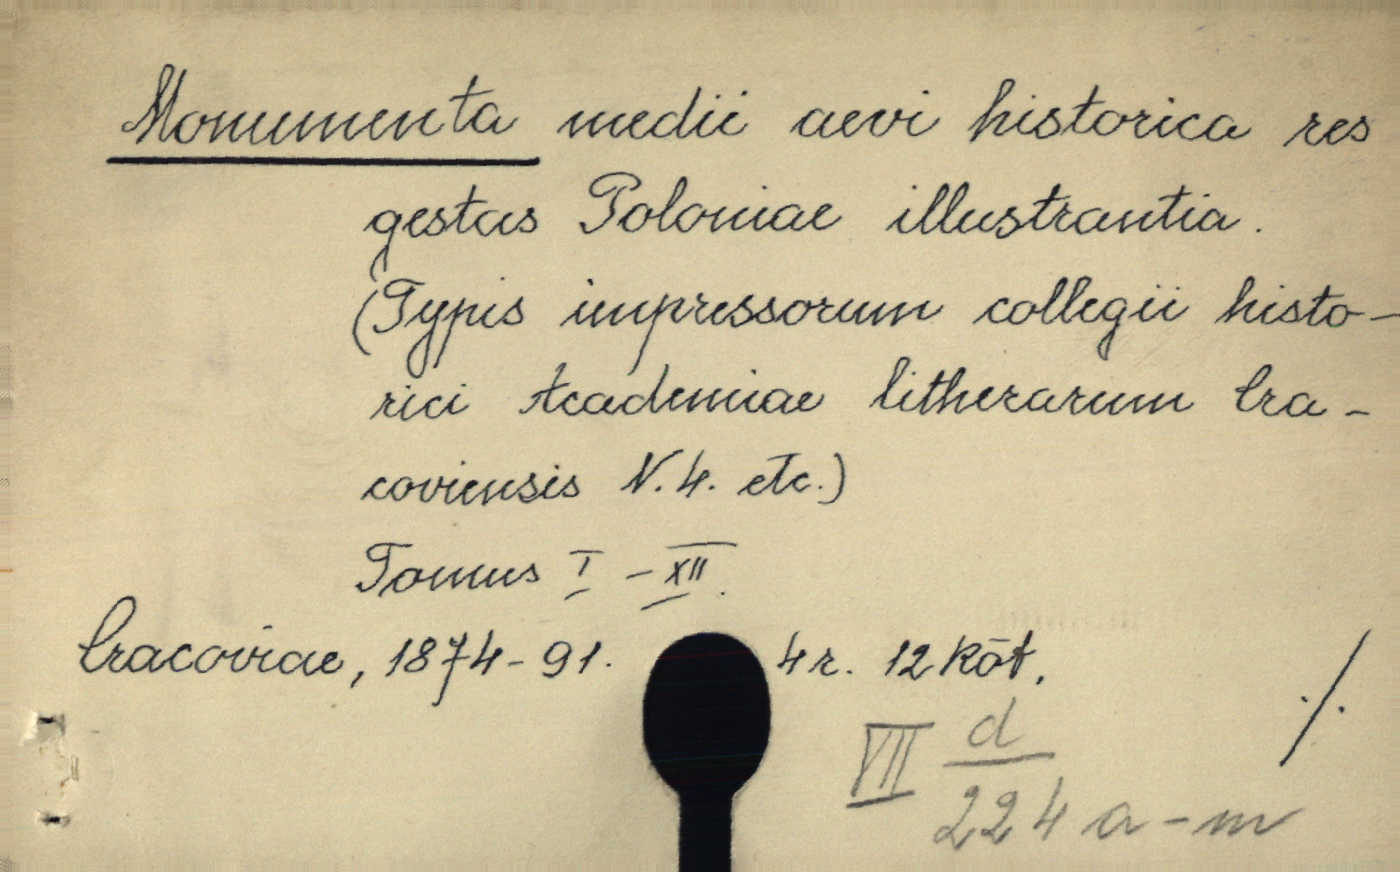 Monumenta medii aevi historica res
gestas Poloniae illustrantia.
(Typis impressorum collegii histo-
rici Academiae litherarum Cra-
coviensis N. 4. etc.)
Tomus I - XII.
Cracoviae, 1874-91. 4r. 12 köt.
./.
VII d
224 a-m